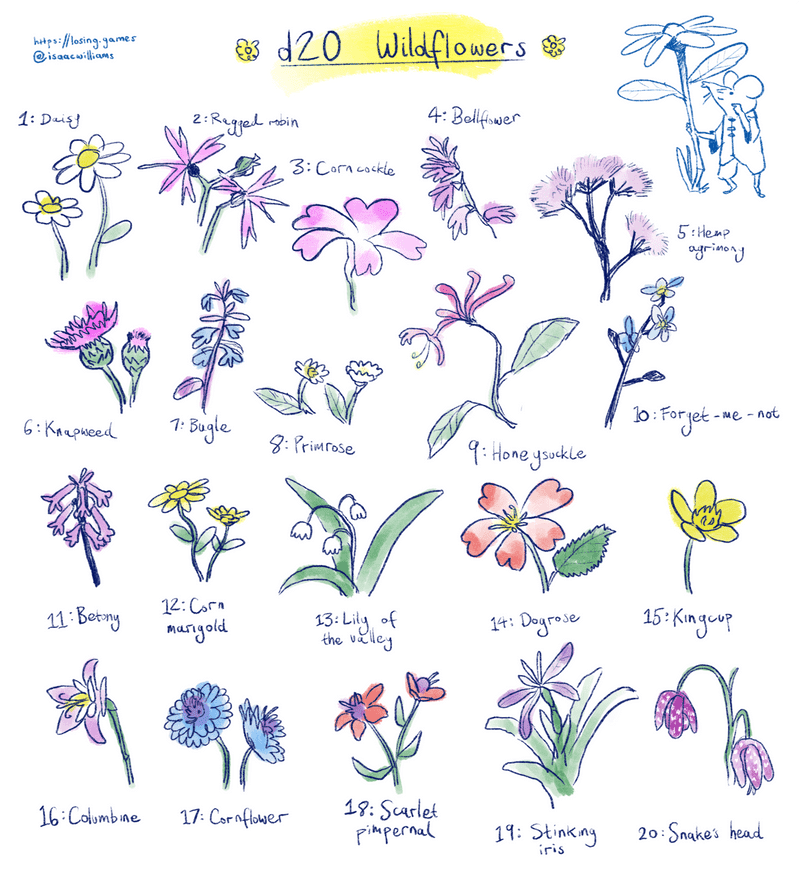 https://losing.games
@isaacwilliams
d20 Wildflowers
1: Daisy
2: Ragged robin
3: Corn cockle
4: Bellflower
5: Hemp
agrimony
6: Knapweed
7: Bugle
8: Primrose
9: Honeysuckle
10: Forget-me-not
11: Betony
12: Corn
marigold
13: Lily of
the valley
14: Dogrose
15: Kingcup
16: Columbine
17: Cornflower
18: Scarlet
pimpernal
19: Stinking
iris
20: Snakes head